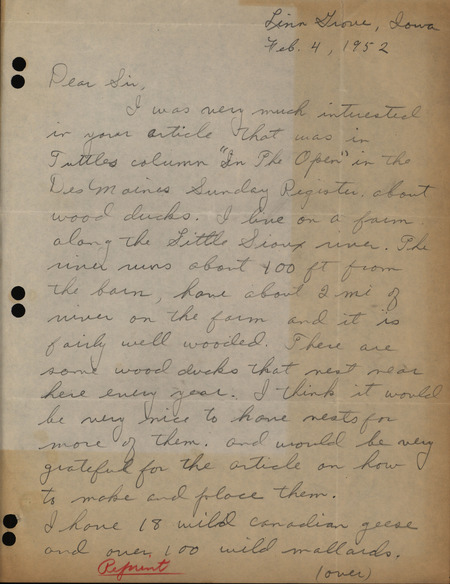 Linn Grove, Iowa
Feb. 4, 1952
Dear Sir,
I was very much interested
in your article that was in
Tuttles column "In The Open" in the
Des Moines Sunday Register. about
wood ducks. I live on a farm
along the Little Sioux river. The
river runs about 100 ft from
the barn, have about 2 mi of
river on the farm and it is
fairly well wooded. There are
some wood ducks that nest near
here every year. I think it would
be very nice to have nests for
more of them. and would be very
grateful for the article on how
to make and place them.
I have 18 wild canadian geese
and over 100 wild mallards.
Reprint (over)